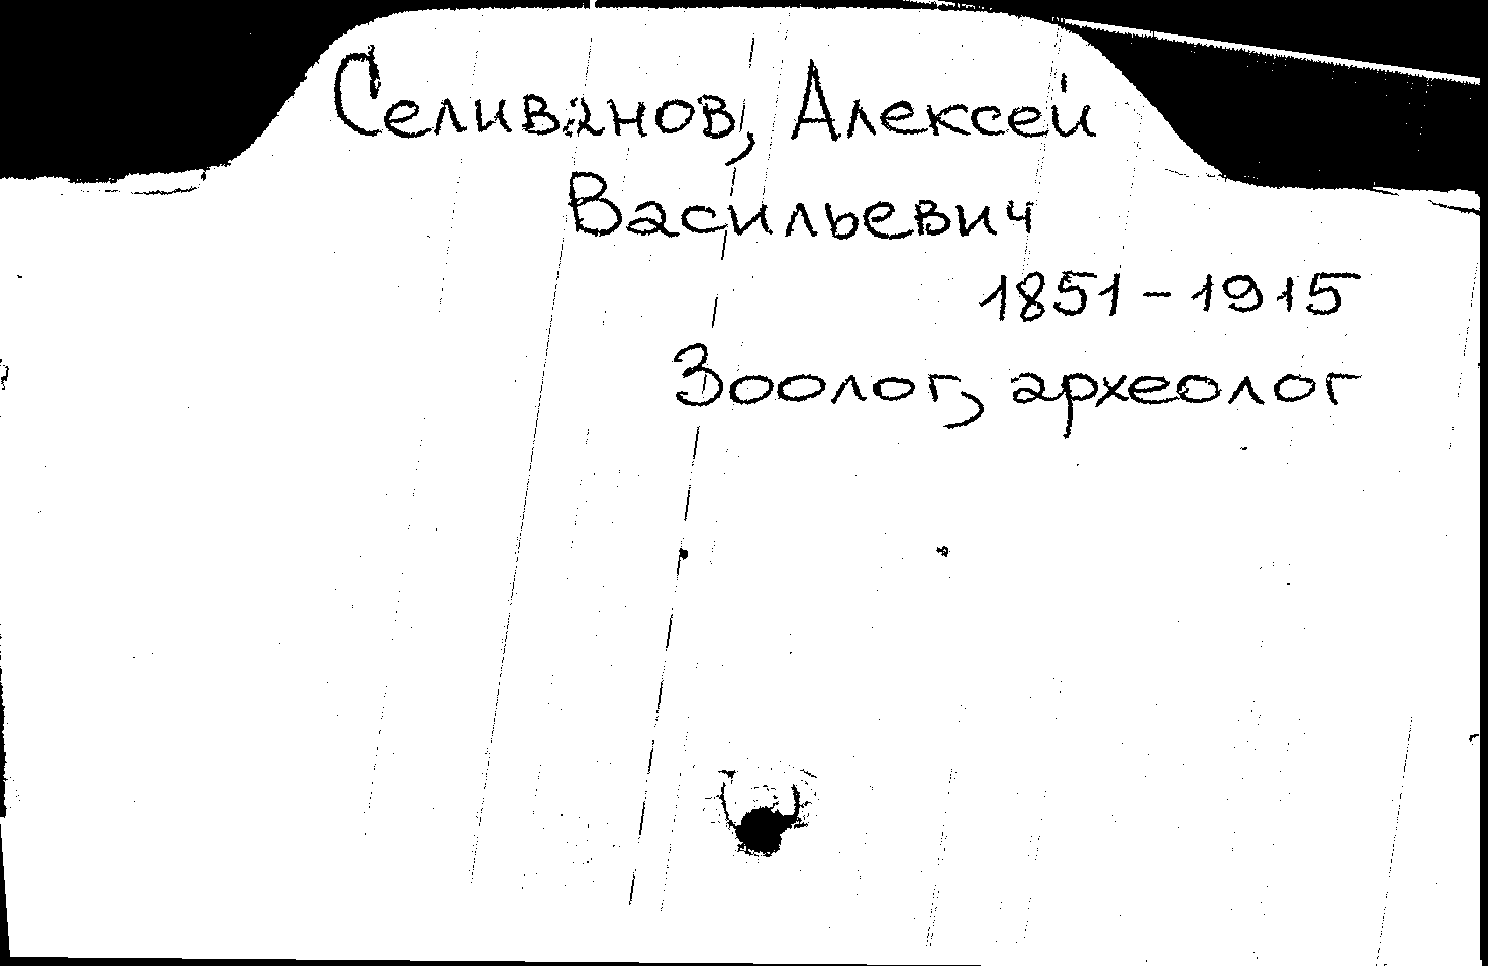 Селиванов, Алексей
Васильевич
1851-1915
Зоолог, археолог